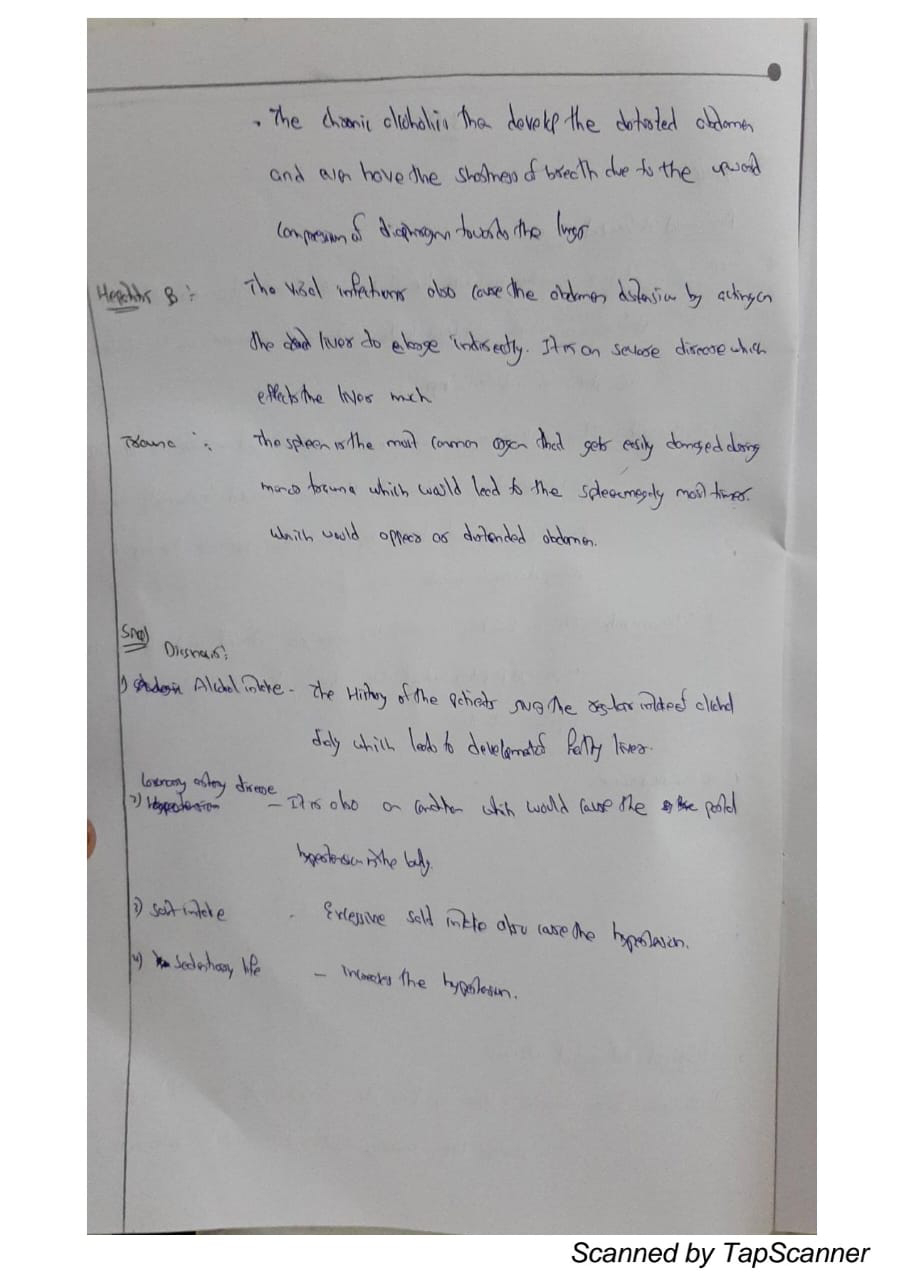 . The chronic alcoholic the develop the distented abdomen
and even have the shortness of breath due to the upword
compression of diaphragm towards the lungs
Hepatits B :- The viral infections also cause the abdomen distension by acting on
the liver to elarge indirectly. It is an severe disease which
effects the liver much
Trauma :- The spleen is the most common organ that gets easily damaged during
trauma which would lead to the spleenomegaly most times.
Which would appear as distended abdomen.
5no)
Diagnosis:
1) Alcohol intake - The History of the patients the regular intake of alcohol
daly which leads to development of fatty liver.
Coronary artery disease
2) Hypertension - It is also an condition which would cause the portal
hypertension in the body.
3) Salt intake - Excessive salt intake also cause the hypertension.
4) Sedentary life - increases the hypertension.
Scanned by TapScanner